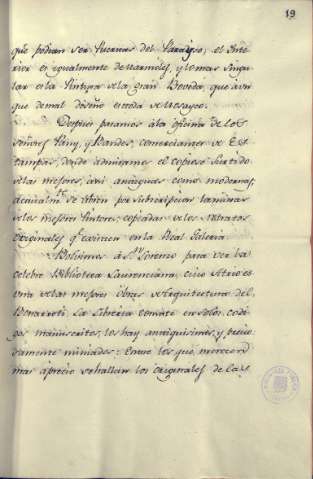 19
que podian ser Puertas del Paraiso; el Inte-
rior es igualmente de marmoles, y lo mas singu-
lar es la Pintura de la gran Boveda, que aun
que de mal diseño excede de lo sayeo.
Despues pasamos á la oficina de los
Señores Pany, y Bardes, comerciantes de Es-
tampas, donde admiramos el copioso surtido
de las mejores, asi antiguas como modernas,
actualm.te se abren por subscripcion laminas
de los mejores Pintores, copiadas de los retratos
Originales q.e existen en la Real Galeria.
Bolvimos á S.n Lorenzo para ver la
celebre Biblioteca Laurenciana, cuio Atrio es
una de las mejores obras de Arquitectura del
Bonarroti. La Libreria consiste en solos codi-
gos manuscritos, los hay antiquisimos, y precio
samente miniados: Entre los que merecen
mas aprecio se hallan los originales de las